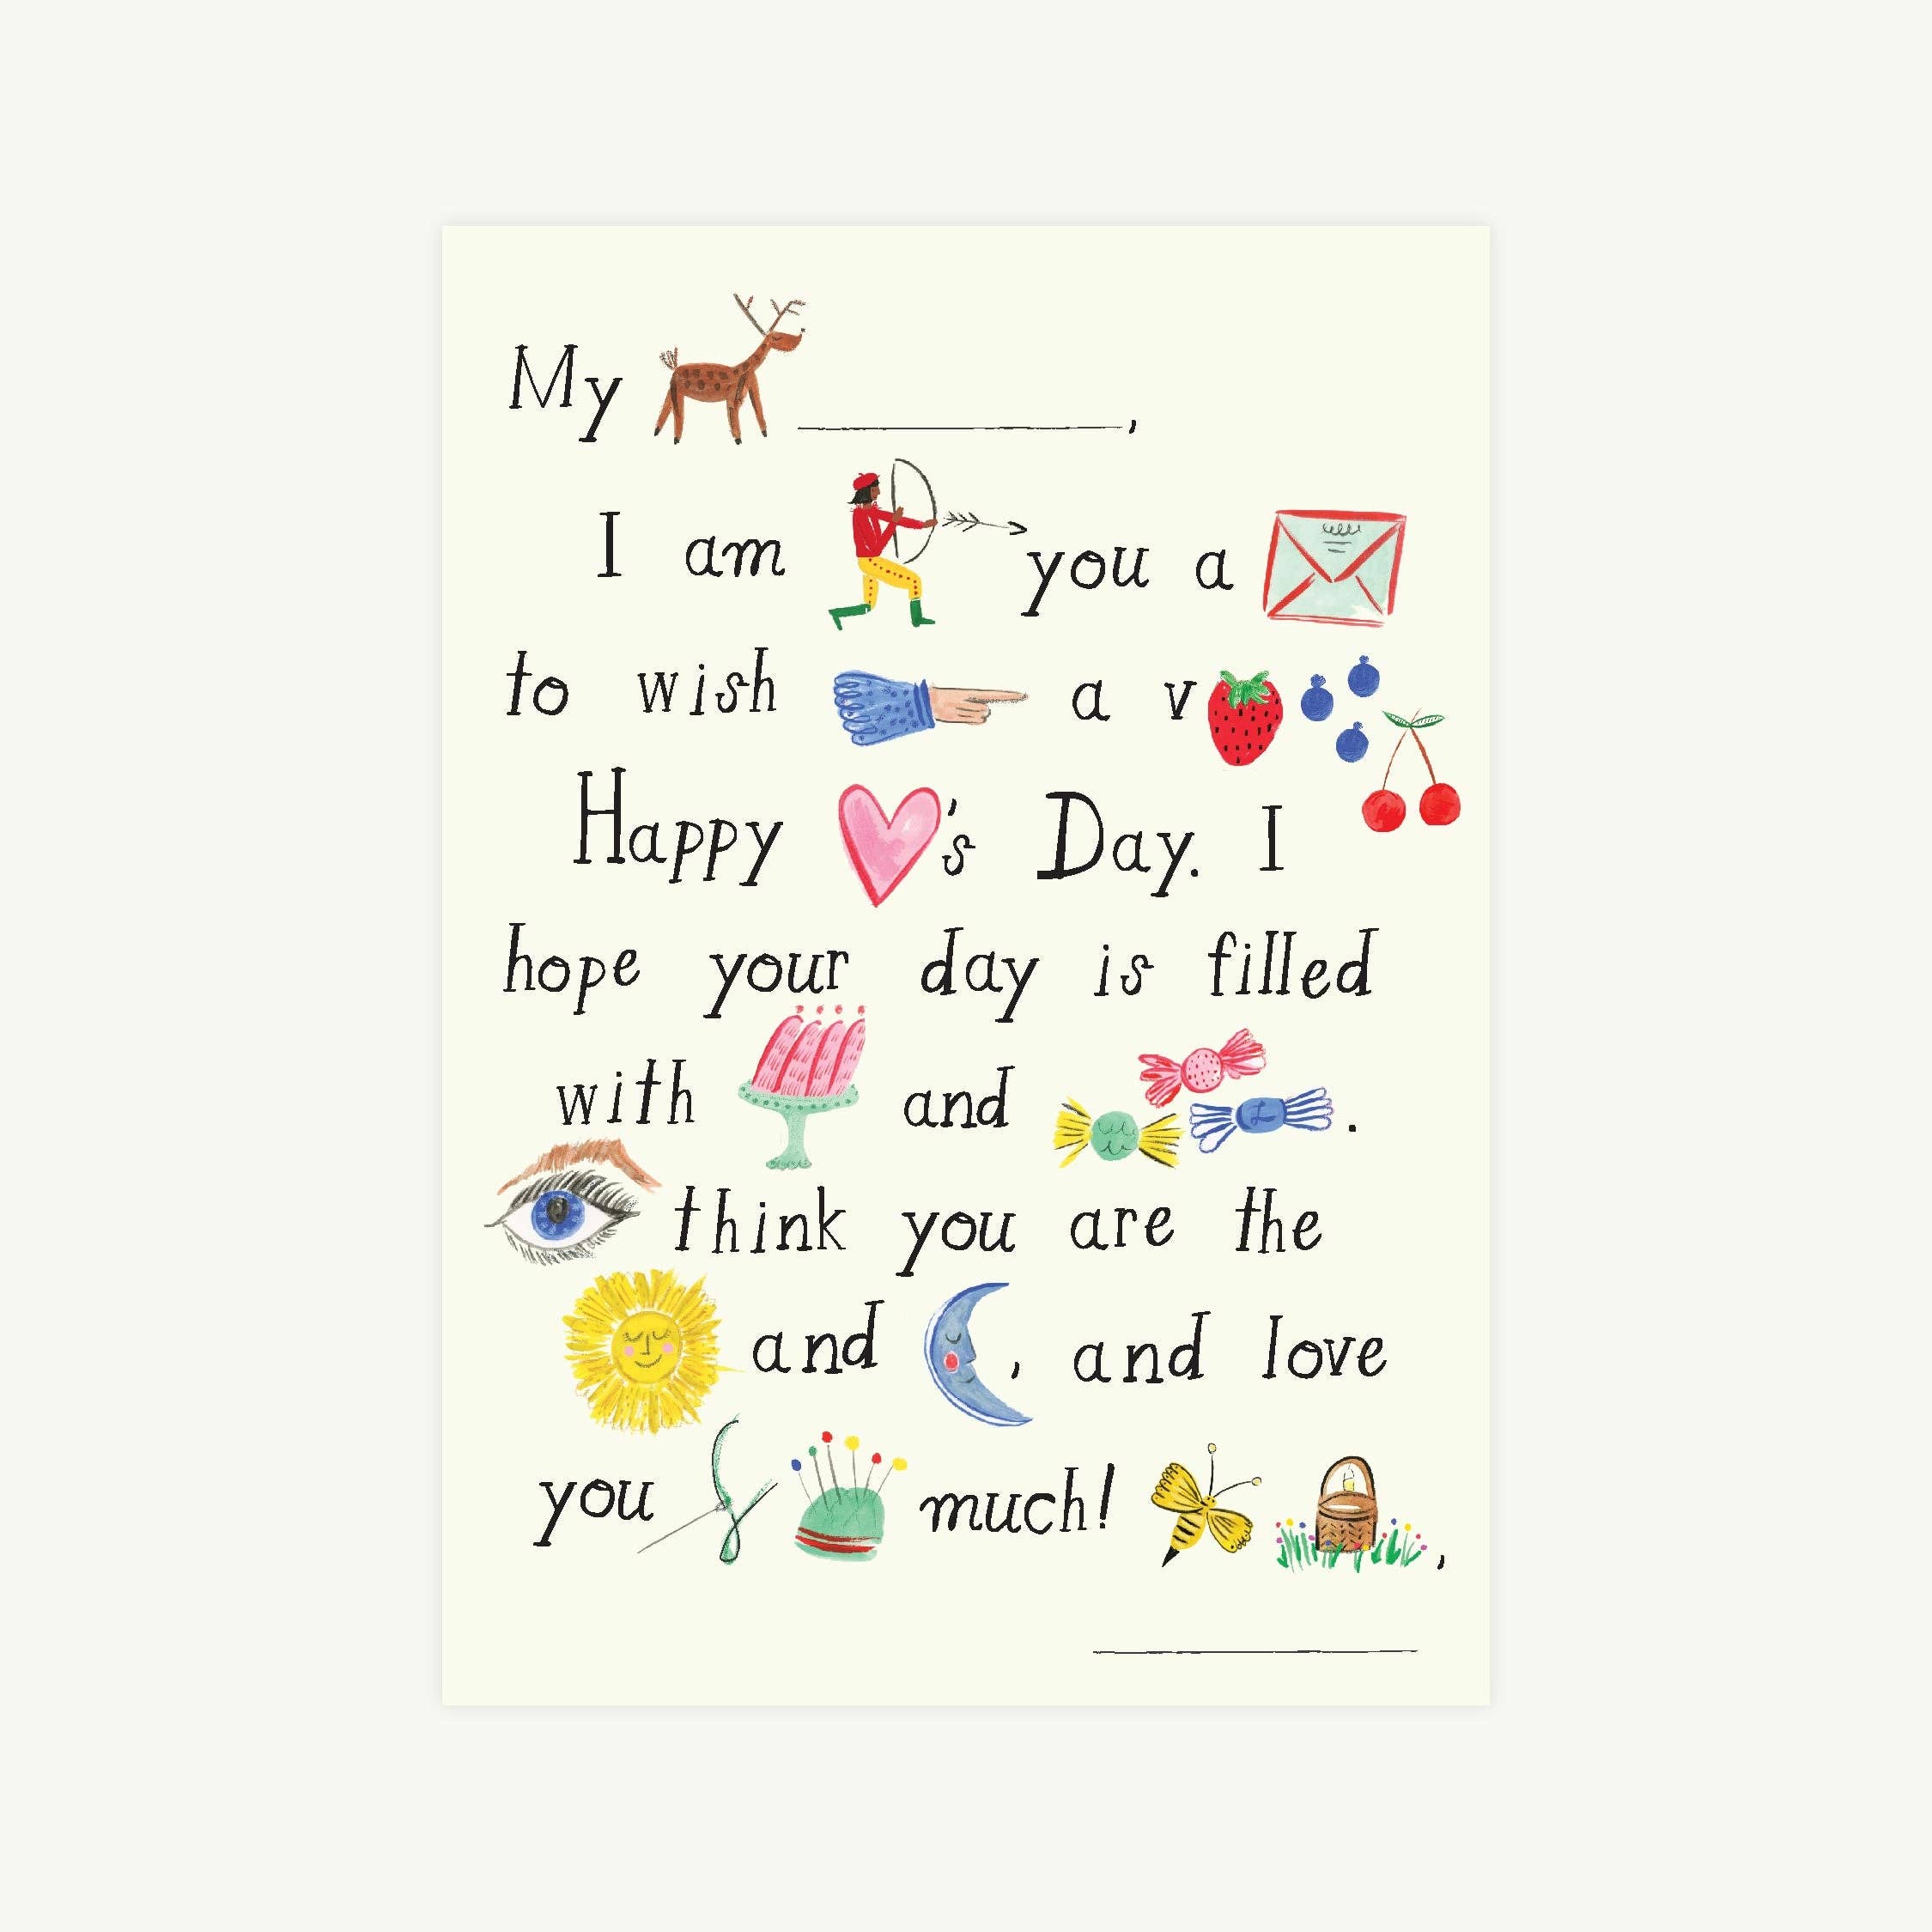 My ____________,
I am you a
to wish a v
Happy 's Day. I
hope your day is filled
with and .
think you are the
and , and love
you much! ,
____________